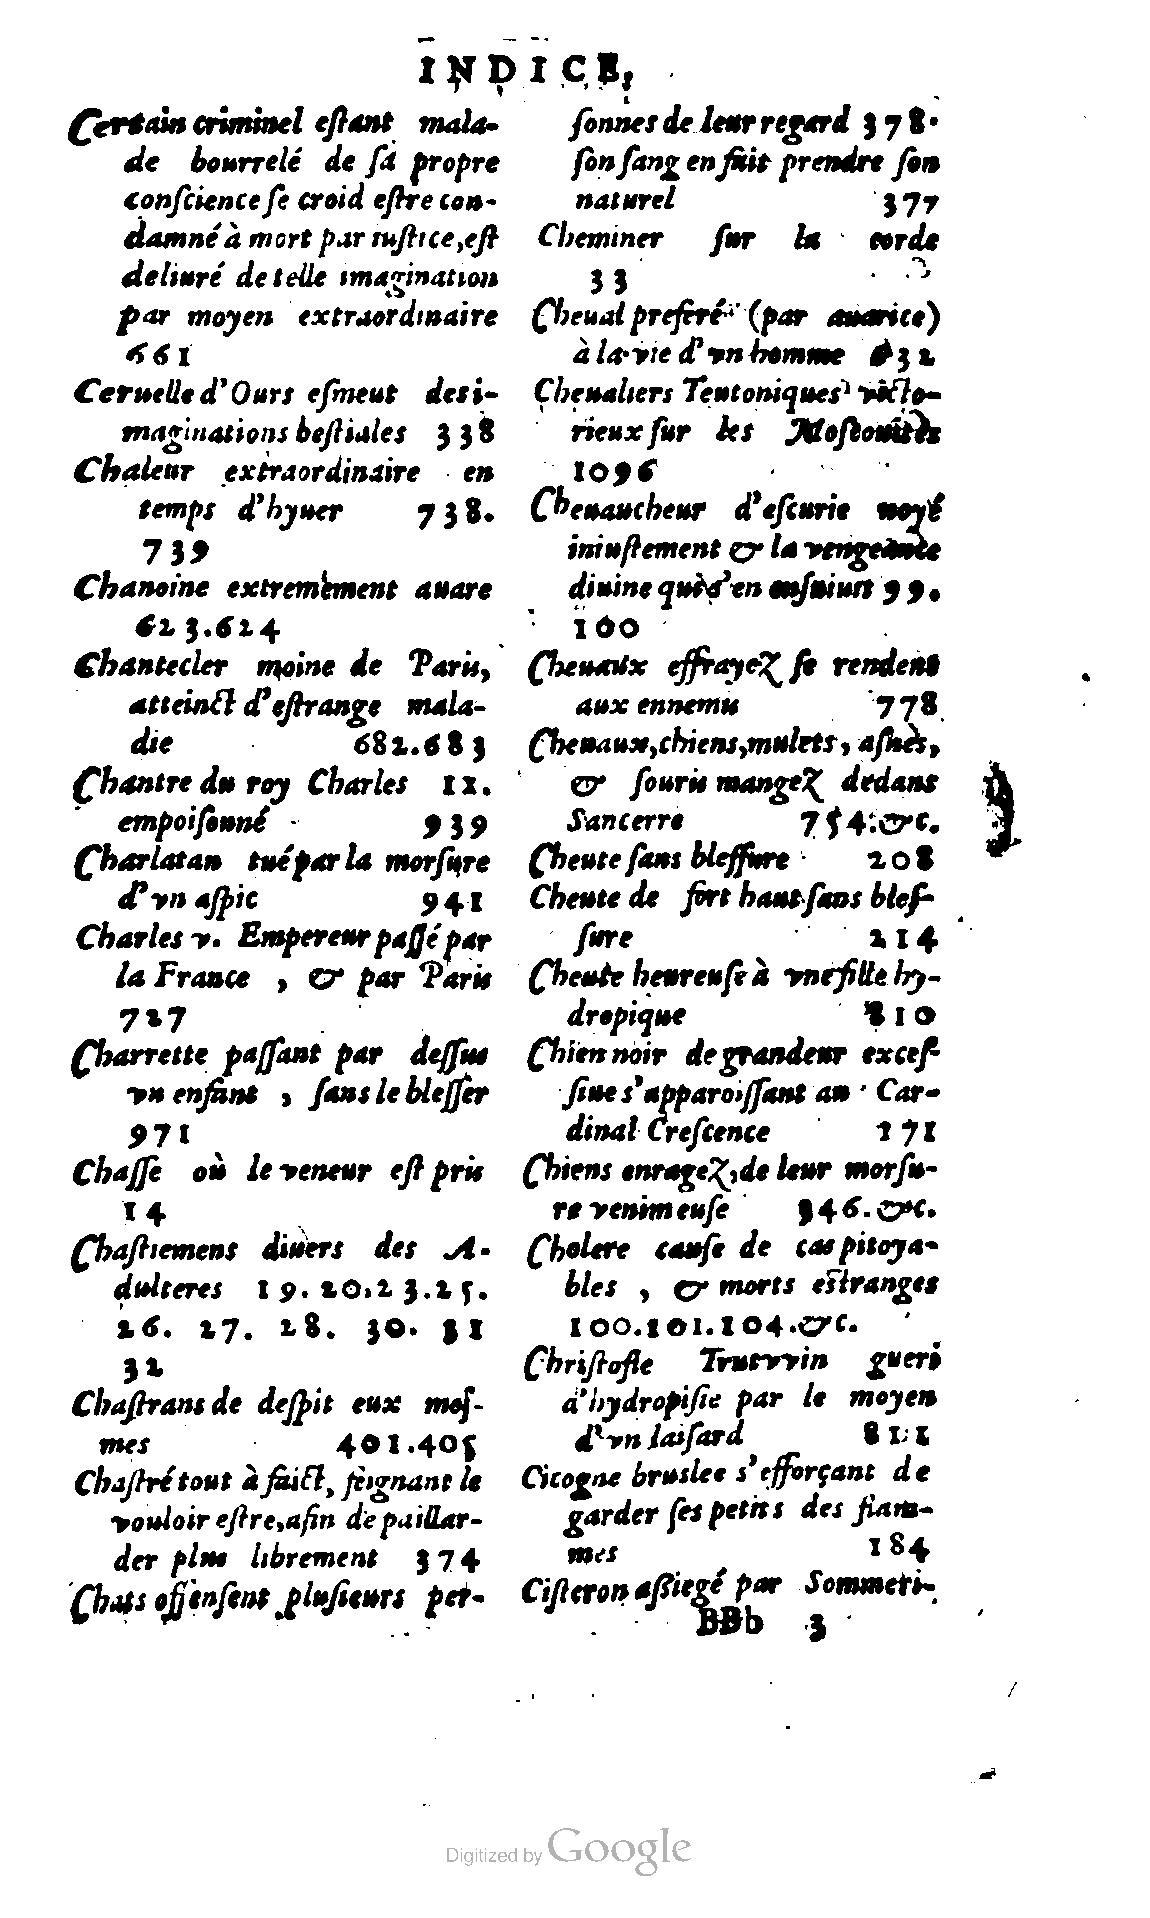 INDICE,
Certain criminel estant mala-
de bourrelé de sa propre
conscience se croid estre con-
damné à mort par iustice, est
deliuré de telle imagination
par moyen extraordinaire
661
Ceruelle d'Ours esmeut des i-
maginations bestiales 338
Chaleur extraordinaire en
temps d'hyuer 738.
739
Chanoine extremement auare
623.624
Chantecler moine de Paris,
atteinct d'estrange mala-
die 682.683
Chantre du roy Charles IX.
empoisonné 939
Charlatan tué par la morsure
d'vn aspic 941
Charles v. Empereur passé par
la France, & par Paris
727
Charrette passant par dessus
vn enfant, sans le blesser
971
Chasse où le veneur est pris
14
Chastiemens diuers des A-
dulteres 19.20.23.25.
26. 27. 28. 30. 31
32
Chastrans de despit eux mes-
mes 401.405
Chastré tout à faict, feignant le
vouloir estre, afin de paillar-
der plus librement 374
Chats offensent plusieurs per-
sonnes de leur regard 378.
son sang en fait prendre son
naturel 377
Cheminer sur la corde
33
Cheual preferé (par auarice)
à la vie d'vn homme 632
Cheualiers Teutoniques victo-
rieux sur les Moscouites
1096
Cheuaucheur d'escurie noyé
iniustement & la vengeance
diuine qui s'en ensuiuit 99.
100
Cheuaux effrayez se rendent
aux ennemis 778
Cheuaux, chiens, mulets, asnes,
& souris mangez dedans
Sancerre 754.&c.
Cheute sans blessure 208
Cheute de fort haut sans bles-
sure 214
Cheute heureuse à vne fille hy-
dropique 810
Chien noir de grandeur exces-
siue s'apparoissant au Car-
dinal Crescence 271
Chiens enragez, de leur morsu-
re venimeuse 346.&c.
Cholere cause de cas pitoya-
bles, & morts estranges
100.101.104.&c.
Christofle Trutvvin gueri
d'hydropisie par le moyen
d'vn laisard 811
Cicogne bruslee s'efforçant de
garder ses petits des flam-
mes 184
Cisteron assiegé par Sommeri-
BBb 3
Digitized by Google